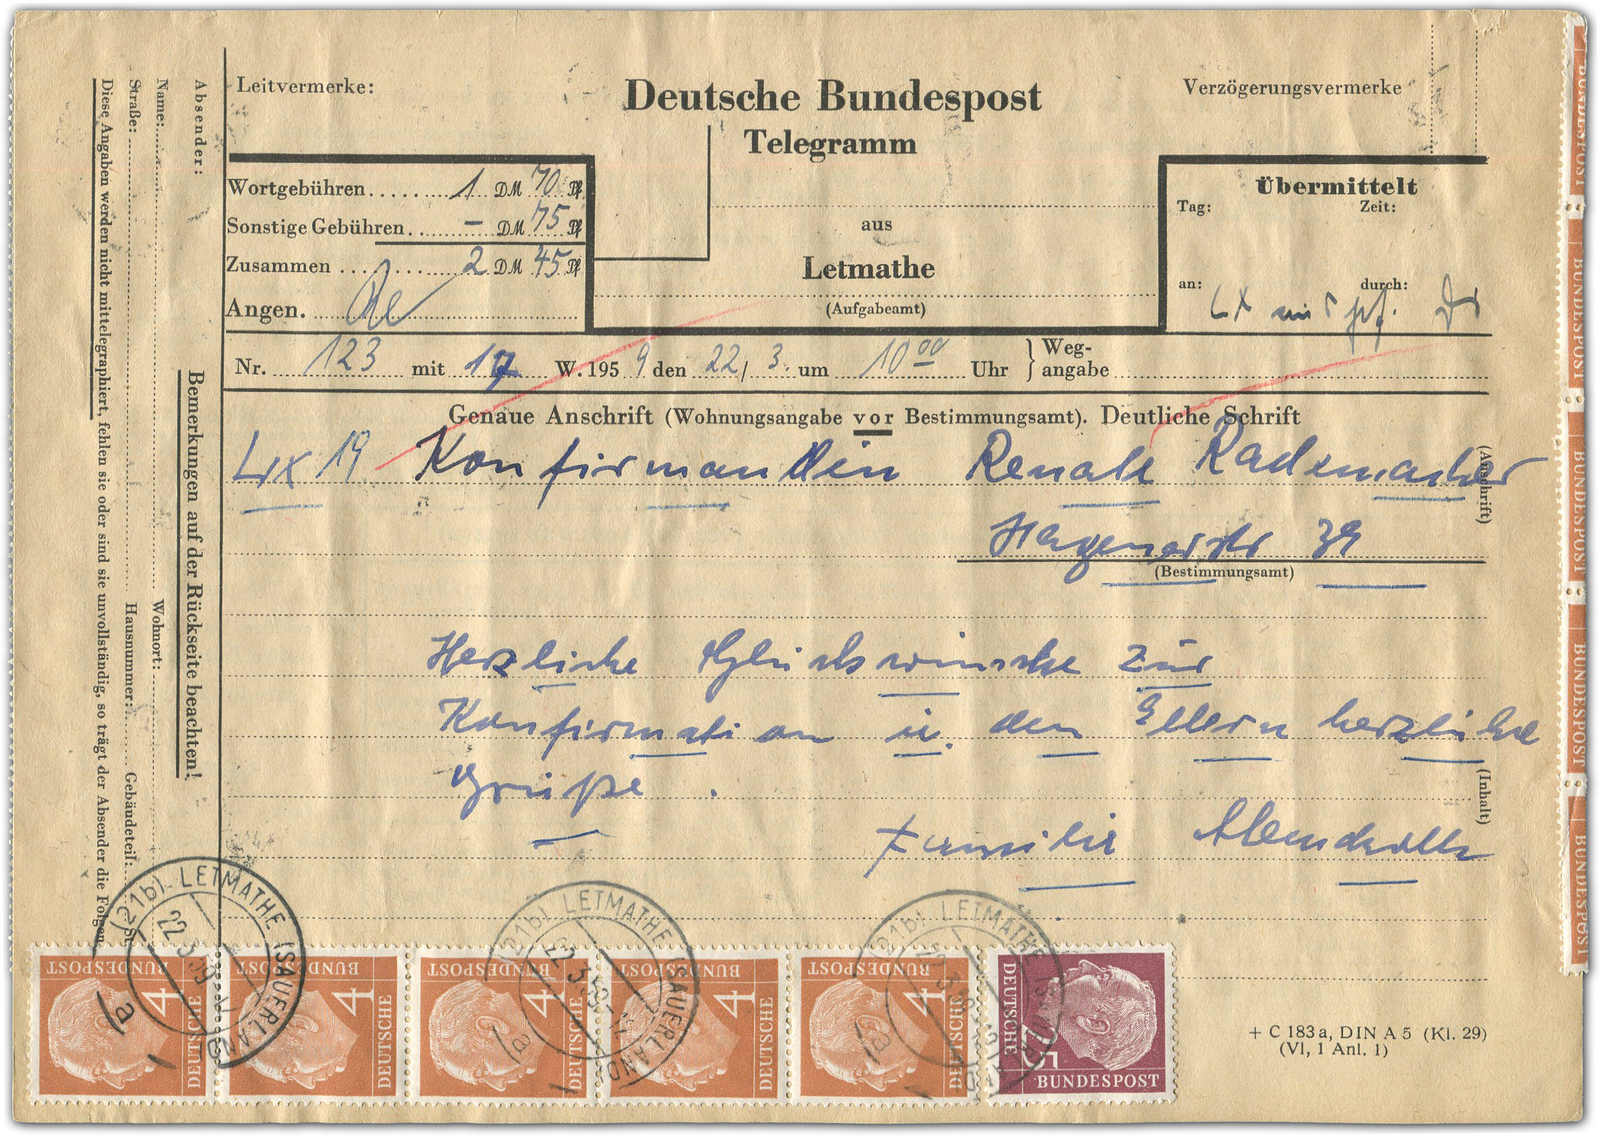 Leitvermerke:
Deutsche Bundespost
Telegramm
Verzögerungsvermerke
Wortgebühren ...... 1 DM 70 Pf
Sonstige Gebühren .. — DM 75 Pf
Zusammen ...... 2 DM 45 Pf
Angen.
aus
Letmathe
(Aufgabeamt)
Übermittelt
Tag: Zeit:
an: durch:
Nr. 123 mit 17 W. 1959 den 22/3. um 10 00 Uhr } Weg-
angabe
Genaue Anschrift (Wohnungsangabe vor Bestimmungsamt). Deutliche Schrift
Lx 19 Konfirmandin Renate Rademacher
(Anschrift)
Hagenerstr 39
(Bestimmungsamt)
Herzliche Glückwünsche zur
Konfirmation u. den Eltern herzliche
Grüße.
(Inhalt)
Familie
Absender:
Name: Wohnort:
Straße: Hausnummer: Gebäudeteil: St
Diese Angaben werden nicht mittelegraphiert, fehlen sie oder sind sie unvollständig, so trägt der Absender die Folgen
Bemerkungen auf der Rückseite beachten!
(21b) LETMATHE (SAUERLAND)
22.3.59
a
(21b) LETMATHE (SAUERLAND)
22.3.59
a
(21b) LETMATHE (SAUERLAND)
22.3.59
a
DEUTSCHE BUNDESPOST 4
DEUTSCHE BUNDESPOST 4
DEUTSCHE BUNDESPOST 4
DEUTSCHE BUNDESPOST 4
DEUTSCHE BUNDESPOST 4
DEUTSCHE BUNDESPOST 5
BUNDESPOST
BUNDESPOST
BUNDESPOST
BUNDESPOST
BUNDESPOST
+ C 183 a, DIN A 5 (Kl. 29)
(VI, 1 Anl. 1)